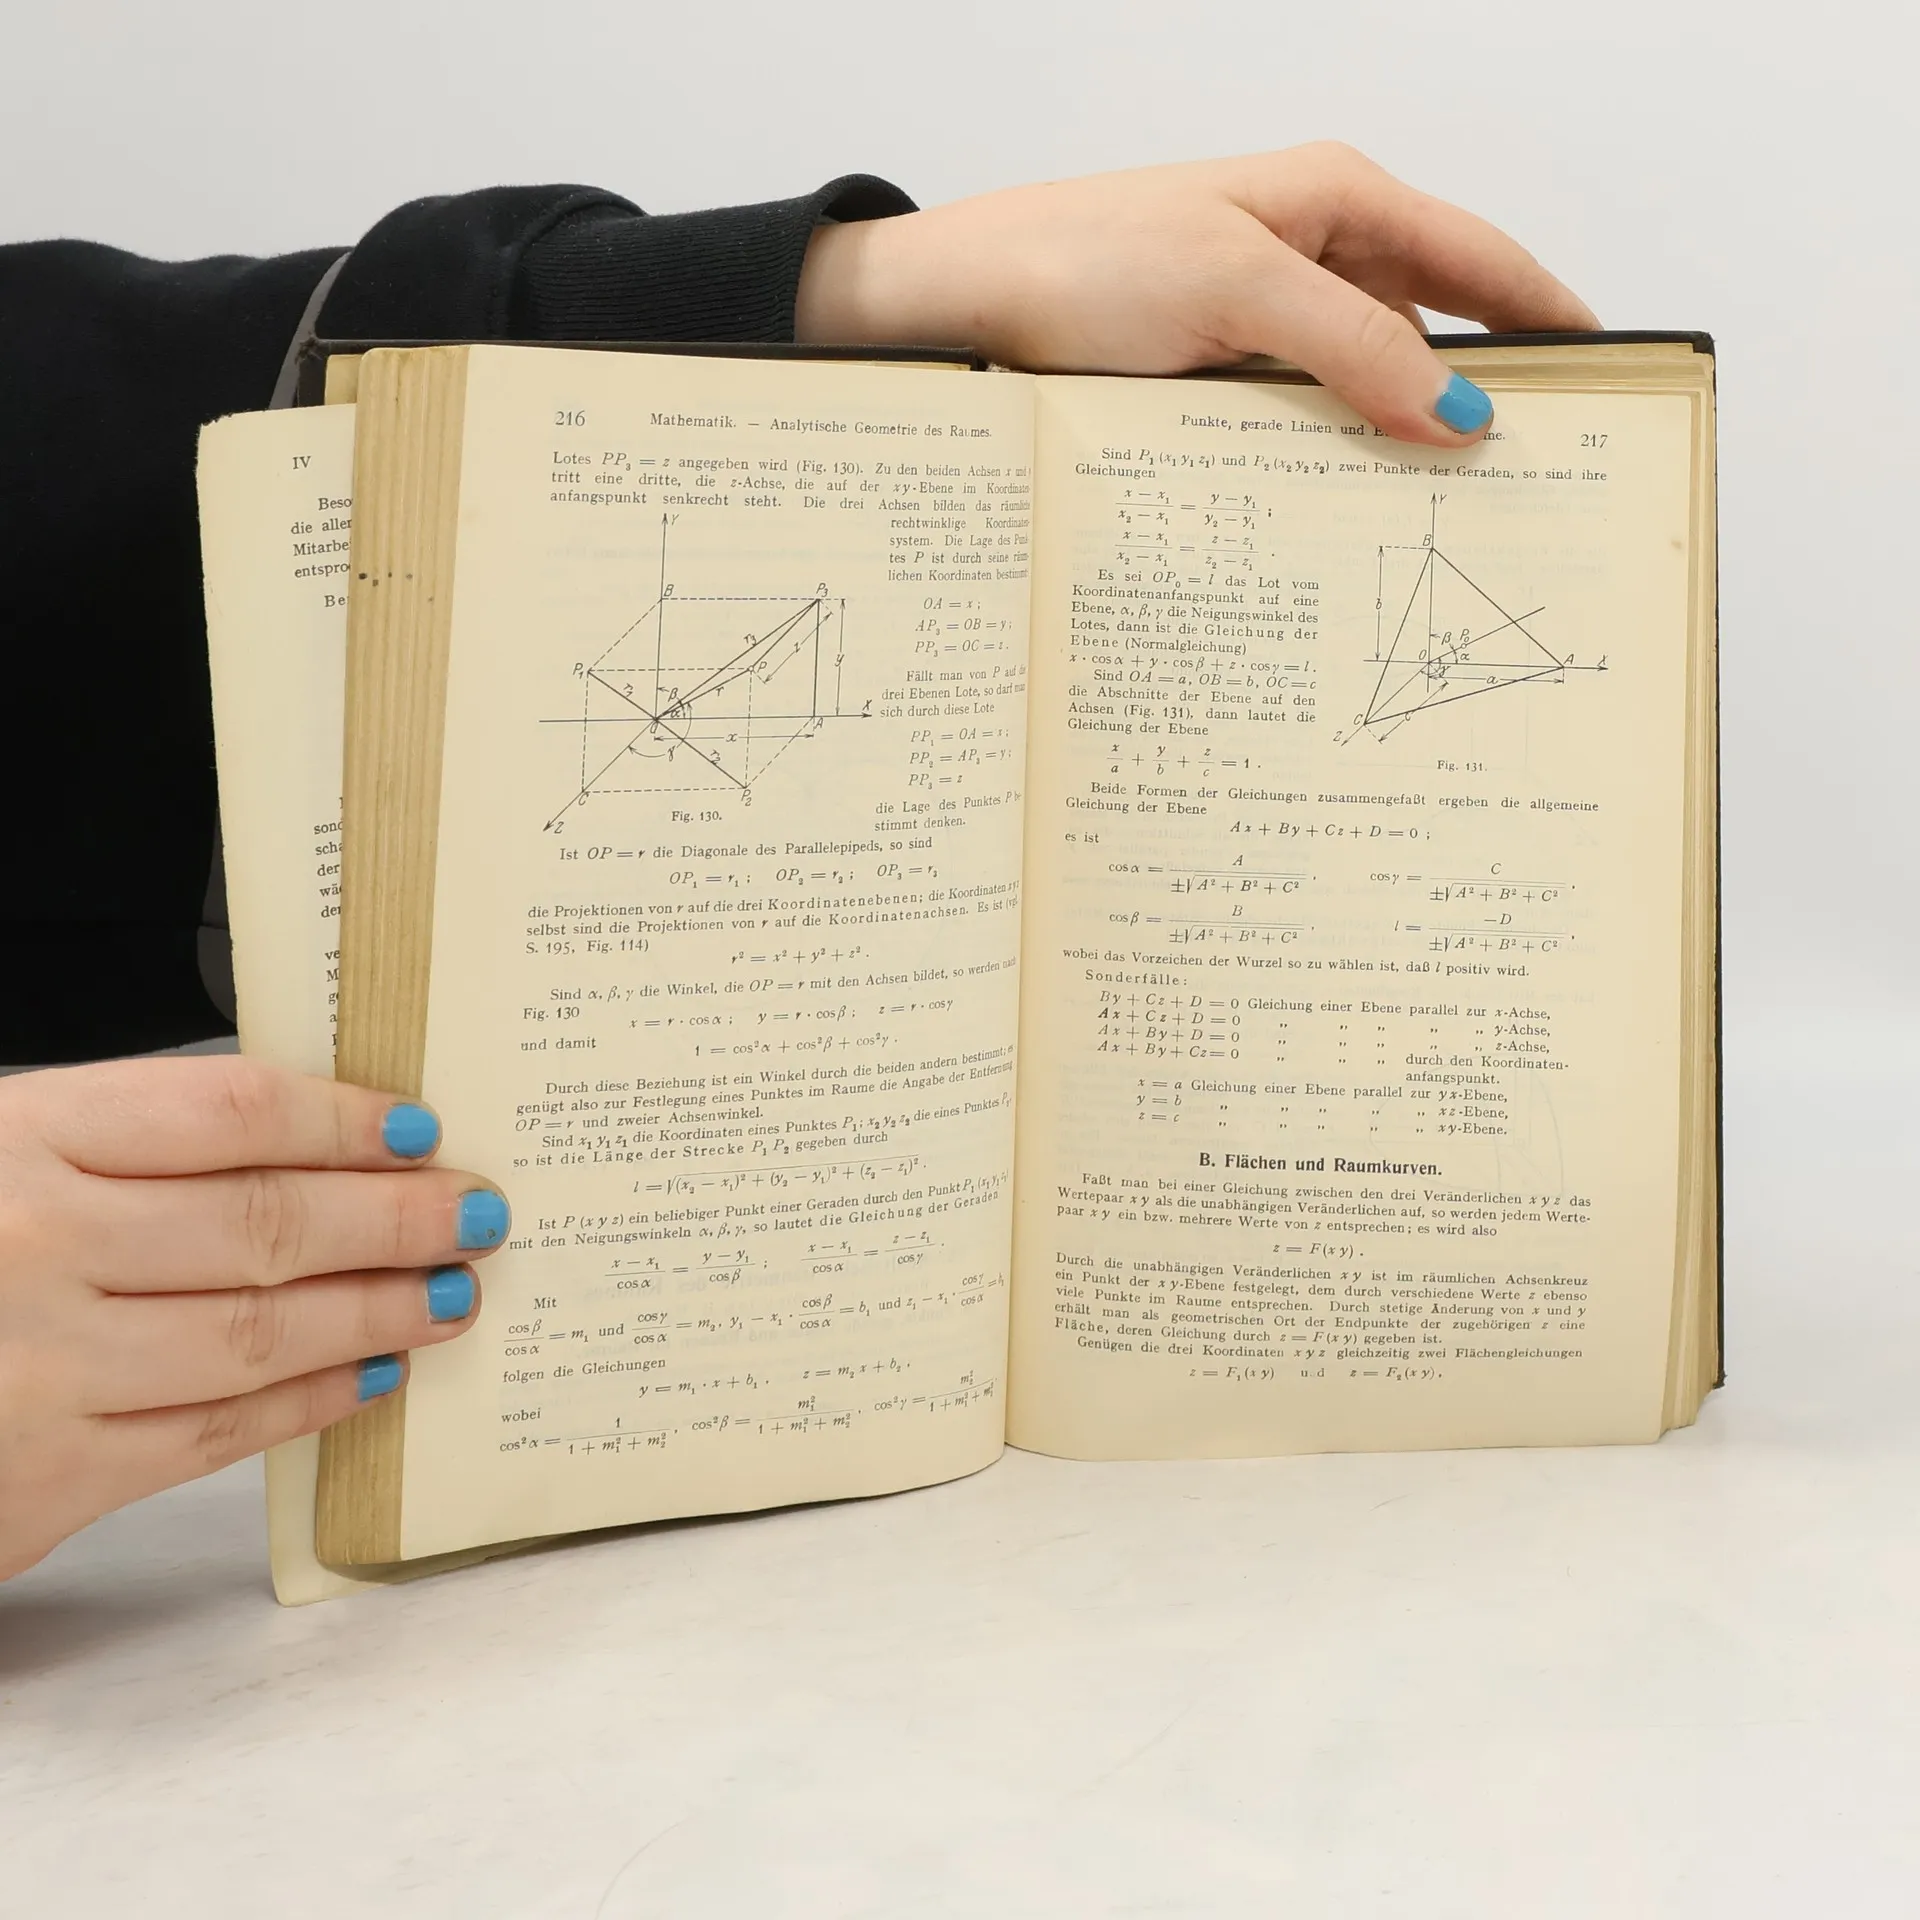 IV
Beso
die aller
Mitarbe
entspro
Be
sond
scha
der
wä
der
ve
M
g
a
216 Mathematik. — Analytische Geometrie des Raumes.
Lotes PP₃ = z angegeben wird (Fig. 130). Zu den beiden Achsen x und
tritt eine dritte, die z-Achse, die auf der xy-Ebene im Koordinaten
anfangspunkt senkrecht steht. Die drei Achsen bilden das räumliche
rechtwinklige Koordinaten-
system. Die Lage des Punk
tes P ist durch seine räum-
lichen Koordinaten bestimmt
OA = x;
AP₃ = OB = y;
PP₃ = OC = z.
Fällt man von P auf die
drei Ebenen Lote, so darf man
sich durch diese Lote
PP₁ = OA = x;
PP₂ = AP₃ = y;
PP₃ = z
die Lage des Punktes P be-
stimmt denken.
Y
B P₃
r₃ z y
P₁ P
r₁ β r
α X
O A
x
γ r₂
C P₂
Z
Fig. 130.
Ist OP = r die Diagonale des Parallelepipeds, so sind
OP₁ = r₁; OP₂ = r₂; OP₃ = r₃
die Projektionen von r auf die drei Koordinatenebenen; die Koordinaten xyz
selbst sind die Projektionen von r auf die Koordinatenachsen. Es ist (vgl.
S. 195, Fig. 114)
r² = x² + y² + z².
Sind α, β, γ die Winkel, die OP = r mit den Achsen bildet, so werden nach
Fig. 130
x = r · cos α; y = r · cos β; z = r · cos γ
und damit
1 = cos² α + cos² β + cos² γ.
Durch diese Beziehung ist ein Winkel durch die beiden andern bestimmt; es
genügt also zur Festlegung eines Punktes im Raume die Angabe der Entfernung
OP = r und zweier Achsenwinkel.
Sind x₁ y₁ z₁ die Koordinaten eines Punktes P₁; x₂ y₂ z₂ die eines Punktes P₂,
so ist die Länge der Strecke P₁ P₂ gegeben durch
l = √(x₂ − x₁)² + (y₂ − y₁)² + (z₂ − z₁)².
Ist P (x y z) ein beliebiger Punkt einer Geraden durch den Punkt P₁ (x₁ y₁ z₁)
mit den Neigungswinkeln α, β, γ, so lautet die Gleichung der Geraden
(x − x₁)/cos α = (y − y₁)/cos β; (x − x₁)/cos α = (z − z₁)/cos γ.
Mit
cos β/cos α = m₁ und cos γ/cos α = m₂, y₁ − x₁ · cos β/cos α = b₁ und z₁ − x₁ · cos γ/cos α =
folgen die Gleichungen
y = m₁ · x + b₁, z = m₂ x + b₂,
wobei
cos² α = 1/(1 + m₁² + m₂²), cos² β = m₁²/(1 + m₁² + m₂²), cos² γ = m₂²/(1 + m₁² + m₂²)
Punkte, gerade Linien und 217
Sind P₁ (x₁ y₁ z₁) und P₂ (x₂ y₂ z₂) zwei Punkte der Geraden, so sind ihre
Gleichungen
(x − x₁)/(x₂ − x₁) = (y − y₁)/(y₂ − y₁);
(x − x₁)/(x₂ − x₁) = (z − z₁)/(z₂ − z₁).
Es sei OP₀ = l das Lot vom
Koordinatenanfangspunkt auf eine
Ebene, α, β, γ die Neigungswinkel des
Lotes, dann ist die Gleichung der
Ebene (Normalgleichung)
x · cos α + y · cos β + z · cos γ = l.
Sind OA = a, OB = b, OC = c
die Abschnitte der Ebene auf den
Achsen (Fig. 131), dann lautet die
Gleichung der Ebene
x/a + y/b + z/c = 1.
Y
B
b
β P₀
O α A X
γ a
C
Z c
Fig. 131.
Beide Formen der Gleichungen zusammengefaßt ergeben die allgemeine
Gleichung der Ebene
Ax + By + Cz + D = 0;
es ist
cos α = A/(±√A² + B² + C²), cos γ = C/(±√A² + B² + C²).
cos β = B/(±√A² + B² + C²), l = −D/(±√A² + B² + C²),
wobei das Vorzeichen der Wurzel so zu wählen ist, daß l positiv wird.
Sonderfälle:
By + Cz + D = 0 Gleichung einer Ebene parallel zur x-Achse,
Ax + Cz + D = 0 „ „ „ „ „ y-Achse,
Ax + By + D = 0 „ „ „ „ „ z-Achse,
Ax + By + Cz = 0 „ „ „ durch den Koordinaten-
anfangspunkt.
x = a Gleichung einer Ebene parallel zur yx-Ebene,
y = b „ „ „ „ „ xz-Ebene,
z = c „ „ „ „ „ xy-Ebene.
B. Flächen und Raumkurven.
Faßt man bei einer Gleichung zwischen den drei Veränderlichen x y z das
Wertepaar x y als die unabhängigen Veränderlichen auf, so werden jedem Werte-
paar x y ein bzw. mehrere Werte von z entsprechen; es wird also
z = F(x y).
Durch die unabhängigen Veränderlichen x y ist im räumlichen Achsenkreuz
ein Punkt der x y-Ebene festgelegt, dem durch verschiedene Werte z ebenso
viele Punkte im Raume entsprechen. Durch stetige Änderung von x und y
erhält man als geometrischen Ort der Endpunkte der zugehörigen z eine
Fläche, deren Gleichung durch z = F(x y) gegeben ist.
Genügen die drei Koordinaten x y z gleichzeitig zwei Flächengleichungen
z = F₁(x y) u d z = F₂(x y),